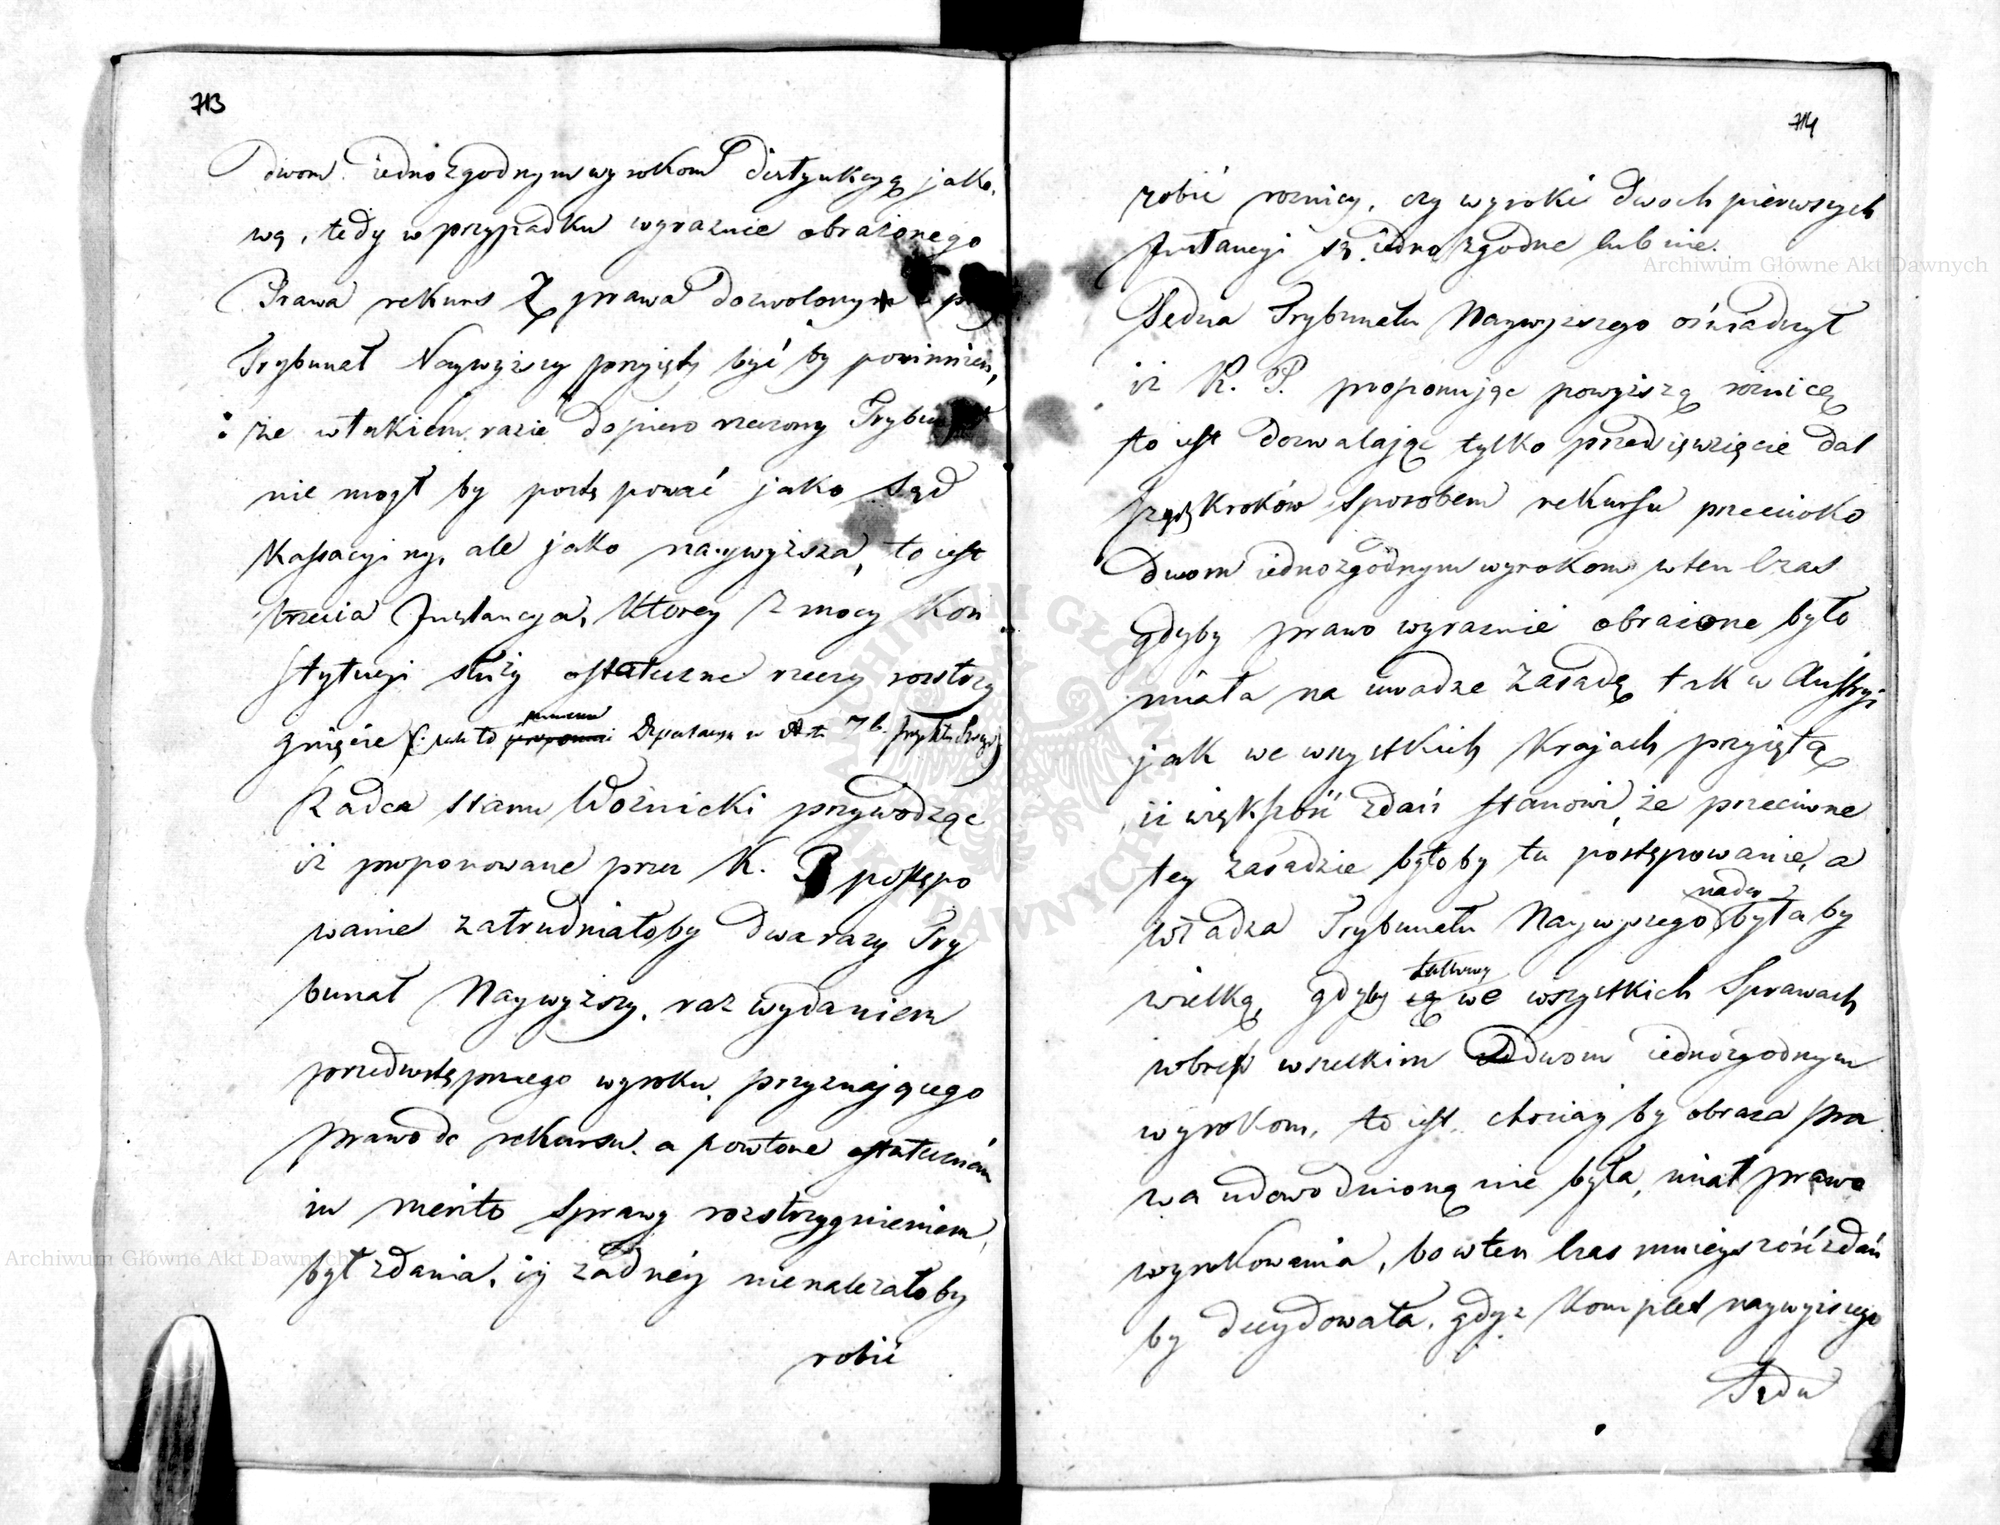 713
dwom iednozgodnym wyrokom distynkcyą jako-
wą, tedy w przypadku wyraznie obrażonego
Prawa rekurs z prawa dozwolonym
Trybunał Naywyższy przyięty być by powinnien,
że w takiem razie dopiero rzeczony Trybunał
nie mogł by postępować jako Sąd
Kassacyiny, ale jako naywyższa, to iest
trzecia Instancya, ktorey z mocy Kon
stytucyi służy ostateczne rzeczy rozstrzy
gnięcie (: jak to Deputacya w Art. 76.
Radca Stanu Woźnicki przywodząc
iż proponowane przez K. P. postępo
wanie zatrudniałoby dwa razy Try
bunał Naywyższy, raz wydaniem
przedwstępnego wyroku, przyznającego
prawo do rekursu, a powtore ostatecznem
in merito Sprawy rozstrzygnieniem,
był zdania, iż żadnéy nienależałoby
robić
714
robić roznicy, czy wyroki dwoch pierwszych
Instancyi są iedno zgodne lub nie.
Sędzia Trybunału Naywyższego oświadczył
iż K. P. proponując powyższą roznicę
to iest dozwalając tylko przedsięwzięcie dal
szych kroków sposobem rekursu przeciwko
dwom iednozgodnym wyrokom w ten czas
gdyby prawo wyraznie obrażone było
miała na uwadze zasadę tak w Austryi
jak we wszystkich Krajach przyiętą
iż większość zdań stanowi, że przeciwne
tey zasadzie byłoby to postępowanie, a
władza Trybunału Naywyższego nadto byłaby
wielką, gdyby takowy we wszystkich Sprawach
wbrew wszelkim dwom iednozgodnym
wyrokom, to iest, chociaż by obraza pra
wa udowodnioną nie była, miał prawo
wyrokowania, bo w ten czas mnieyszość zdań
by decydowała, gdyż Komplet naywyższego
Sądu
Archiwum Główne Akt Dawnych
Archiwum Główne Akt Dawnych